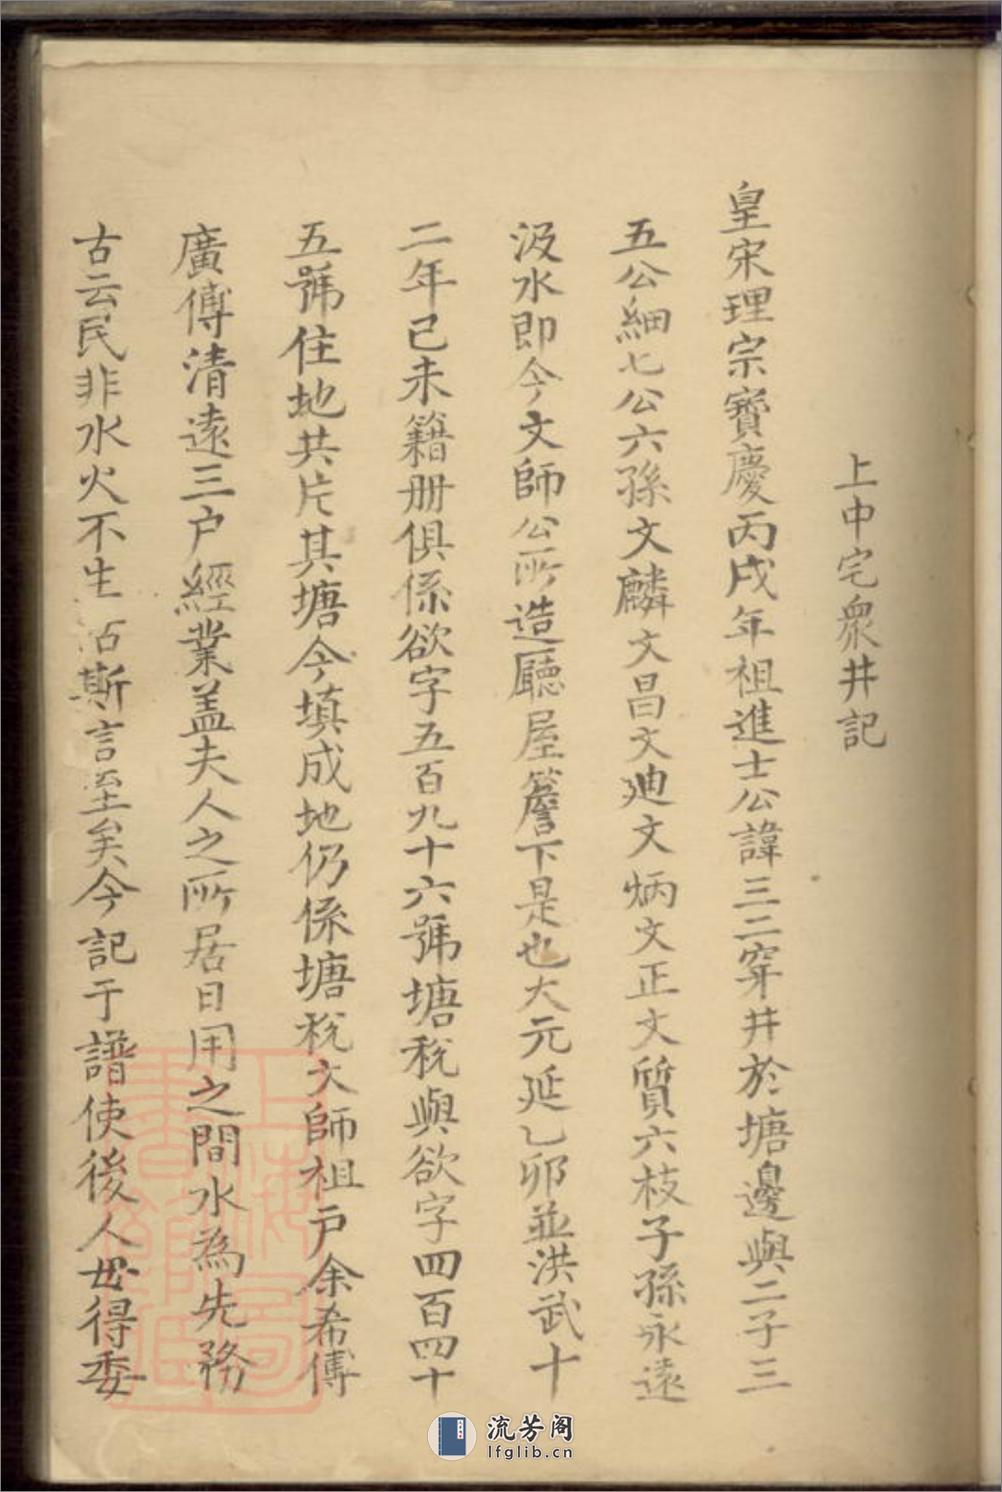 上中宅衆井記
皇宋理宗寳慶丙戌年祖進士公諱三二穿井於塘邊與二子三
五公細七公六孫文麟文昌文廸文炳文正文質六枝子孫永遠
汲水即今文師公所造廳屋簷下是也大元延乙卯並洪武十
二年己未籍册俱係欲字五百九十六號塘稅與欲字四百四十
五號住地共片其塘今填成地仍係塘稅文師祖戸余希傅
廣傅清遠三户經業盖夫人之所居日用之間水為先務
古云民非水火不生活斯言至矣今記于譜使後人毋得委
上海圖書館藏
流芳阁
lfglib.cn